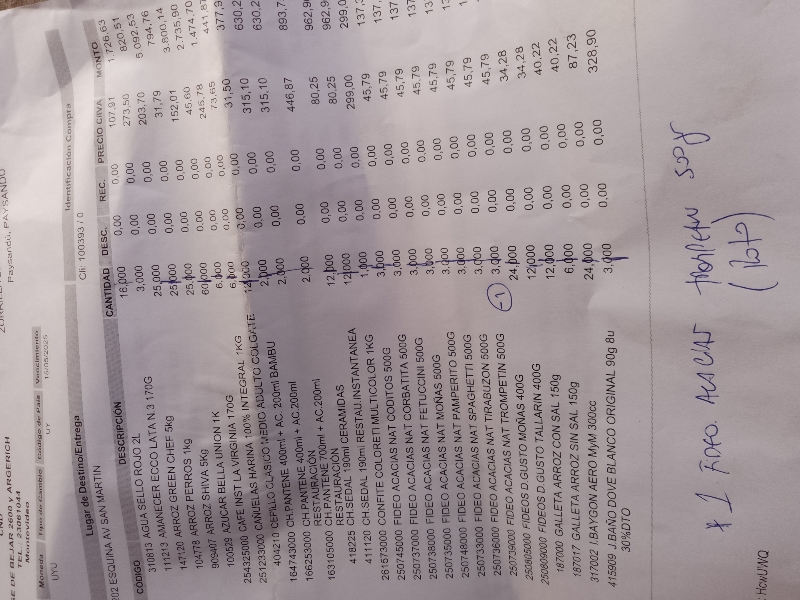 DE BEJAR 2600 Y ARGERICH
Montevideo
Paysandú, PAYSANDÚ
Moneda Tipo de Cambio Código de País Vencimiento
UYU UY
Lugar de Destino/Entrega Identificación Compra
ESQUINA AV SAN MARTIN Cli: 100393 / 0
CODIGO DESCRIPCIÓN CANTIDAD DESC. REC. PRECIO C/IVA MONTO
310813 AGUA SELLO ROJO 2L 16,000 0,00 0,00 107,91 1.726,63
111213 AMANECER ECCO LATA N.3 170G 3,000 0,00 0,00 273,50 820,51
147120 ARROZ GREEN CHEF 5kg 25,000 0,00 0,00 203,70 5.092,53
104778 ARROZ PERROS 1kg 25,000 0,00 0,00 31,79 794,76
909401 ARROZ SHIVA 5Kg 25,000 0,00 0,00 152,01 3.800,14
100529 AZUCAR BELLA UNION 1K 60,000 0,00 0,00 45,60 2.735,90
254325000 CAFE INST LA VIRGINIA 170G 6,000 0,00 0,00 245,78 1.474,70
251233000 CAÑUELAS HARINA 100% INTEGRAL 1KG 6,000 0,00 0,00 73,65 441,87
404210 CEPILLO CLASICO MEDIO ADULTO COLGATE 12,000 0,00 0,00 31,50 377,9
164743000 CH.PANTENE 400ml + AC. 200ml BAMBU 2,000 0,00 0,00 315,10 630,2
166253000 CH.PANTENE 400ml + AC.200ml 2,000 0,00 0,00 315,10 630,2
RESTAURACION
163105000 CH.PANTENE 700ml + AC.200ml 2,000 0,00 0,00 446,87 893,7
RESTAURACION
418225 CH.SEDAL 190ml CERAMIDAS 12,000 0,00 0,00 80,25 962,9
411120 CH.SEDAL 190ml RESTAU.INSTANTANEA 12,000 0,00 0,00 80,25 962,9
261573000 CONFITE COLORETI MULTICOLOR 1KG 1,000 0,00 0,00 299,00 299,0
250745000 FIDEO ACACIAS NAT CODITOS 500G 3,000 0,00 0,00 45,79 137,
250737000 FIDEO ACACIAS NAT CORBATITA 500G 3,000 0,00 0,00 45,79 137
250738000 FIDEO ACACIAS NAT FETUCCINI 500G 3,000 0,00 0,00 45,79 137
250735000 FIDEO ACACIAS NAT MOÑAS 500G 3,000 0,00 0,00 45,79
250748000 FIDEO ACACIAS NAT PAMPERITO 500G 3,000 0,00 0,00 45,79
250733000 FIDEO ACACIAS NAT SPAGHETTI 500G 3,000 0,00 0,00 45,79
250736000 FIDEO ACACIAS NAT TIRABUZON 500G 3,000 0,00 0,00 45,79
250739000 FIDEO ACACIAS NAT TROMPETIN 500G -1 3,000 0,00 0,00 45,79
250805000 FIDEOS D GUSTO MOÑAS 400G 24,000 0,00 0,00 34,28
250809000 FIDEOS D GUSTO TALLARIN 400G 12,000 0,00 0,00 34,28
187000 GALLETA ARROZ CON SAL 150g 12,000 0,00 0,00 40,22
187017 GALLETA ARROZ SIN SAL 150g 6,000 0,00 0,00 40,22
317002 I.BAYGON AERO MyM 300cc 24,000 0,00 0,00 87,23
415909 J.BAÑO DOVE BLANCO ORIGINAL 90g 8u 3,000 0,00 0,00 328,90
30%DTO
* 1 FIDEO. ACACIAS TROMPETIN 500g
(Roto)
HcwUWQ